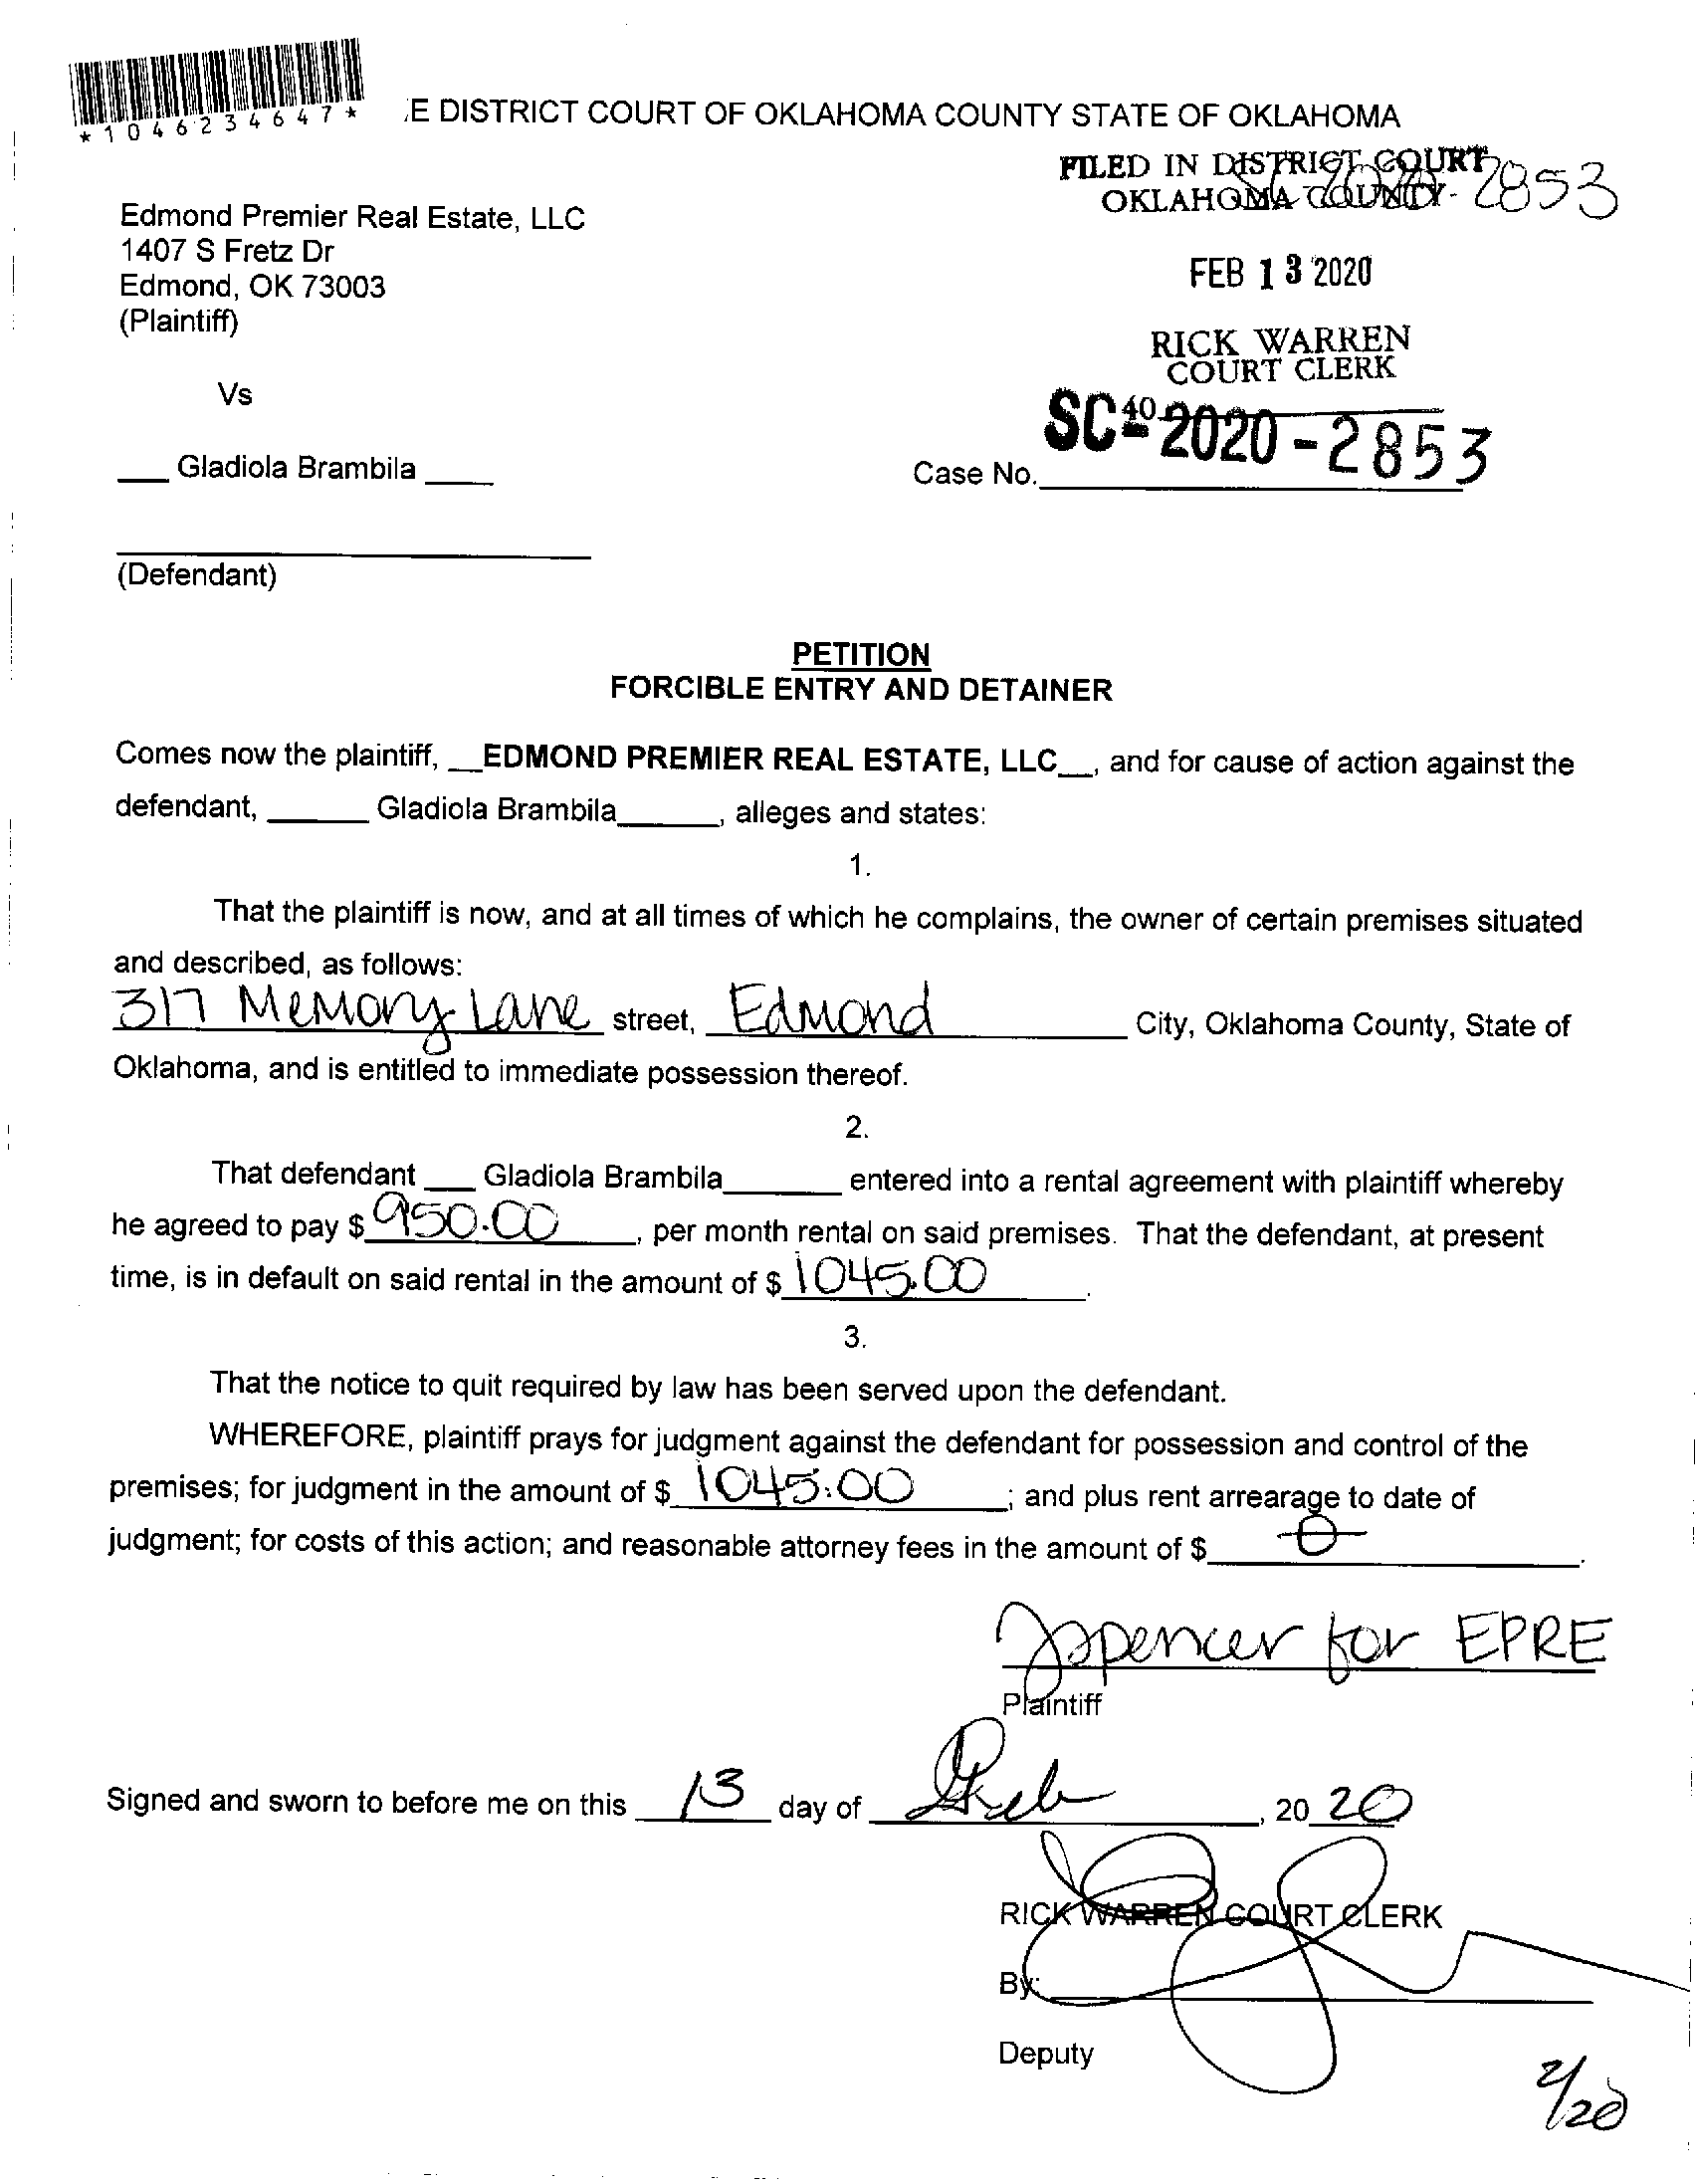 *1046234647*
E DISTRICT COURT OF OKLAHOMA COUNTY STATE OF OKLAHOMA
FILED IN DISTRICT COURT
OKLAHOMA COUNTY
SC-2020-2853
Edmond Premier Real Estate, LLC
1407 S Fretz Dr
Edmond, OK 73003
(Plaintiff)
FEB 13 2020
RICK WARREN
COURT CLERK
40
Vs
___ Gladiola Brambila ____
Case No. SC-2020-2853
(Defendant)
PETITION
FORCIBLE ENTRY AND DETAINER
Comes now the plaintiff, __EDMOND PREMIER REAL ESTATE, LLC__, and for cause of action against the
defendant, ______ Gladiola Brambila______, alleges and states:
1.
That the plaintiff is now, and at all times of which he complains, the owner of certain premises situated
and described, as follows:
317 Memory Lane street, Edmond City, Oklahoma County, State of
Oklahoma, and is entitled to immediate possession thereof.
2.
That defendant ___ Gladiola Brambila_______ entered into a rental agreement with plaintiff whereby
he agreed to pay $ 950.00, per month rental on said premises. That the defendant, at present
time, is in default on said rental in the amount of $ 1045.00.
3.
That the notice to quit required by law has been served upon the defendant.
WHEREFORE, plaintiff prays for judgment against the defendant for possession and control of the
premises; for judgment in the amount of $ 1045.00; and plus rent arrearage to date of
judgment; for costs of this action; and reasonable attorney fees in the amount of $ 0.
JSpencer for EPRE
Plaintiff
Signed and sworn to before me on this 13 day of Feb, 2020
RICK WARREN COURT CLERK
By:
Deputy
2/20